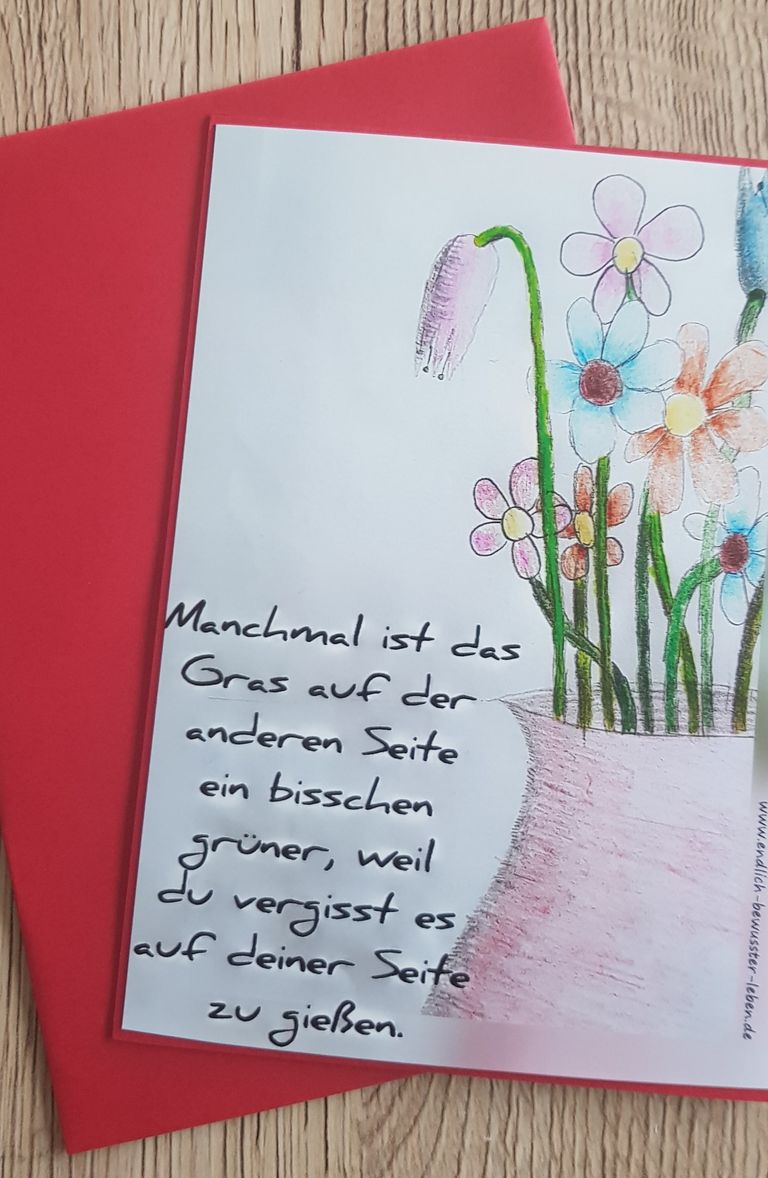 Manchmal ist das
Gras auf der
anderen Seite
ein bisschen
grüner, weil
du vergisst es
auf deiner Seite
zu gießen.
www.endlich-bewusster-leben.de